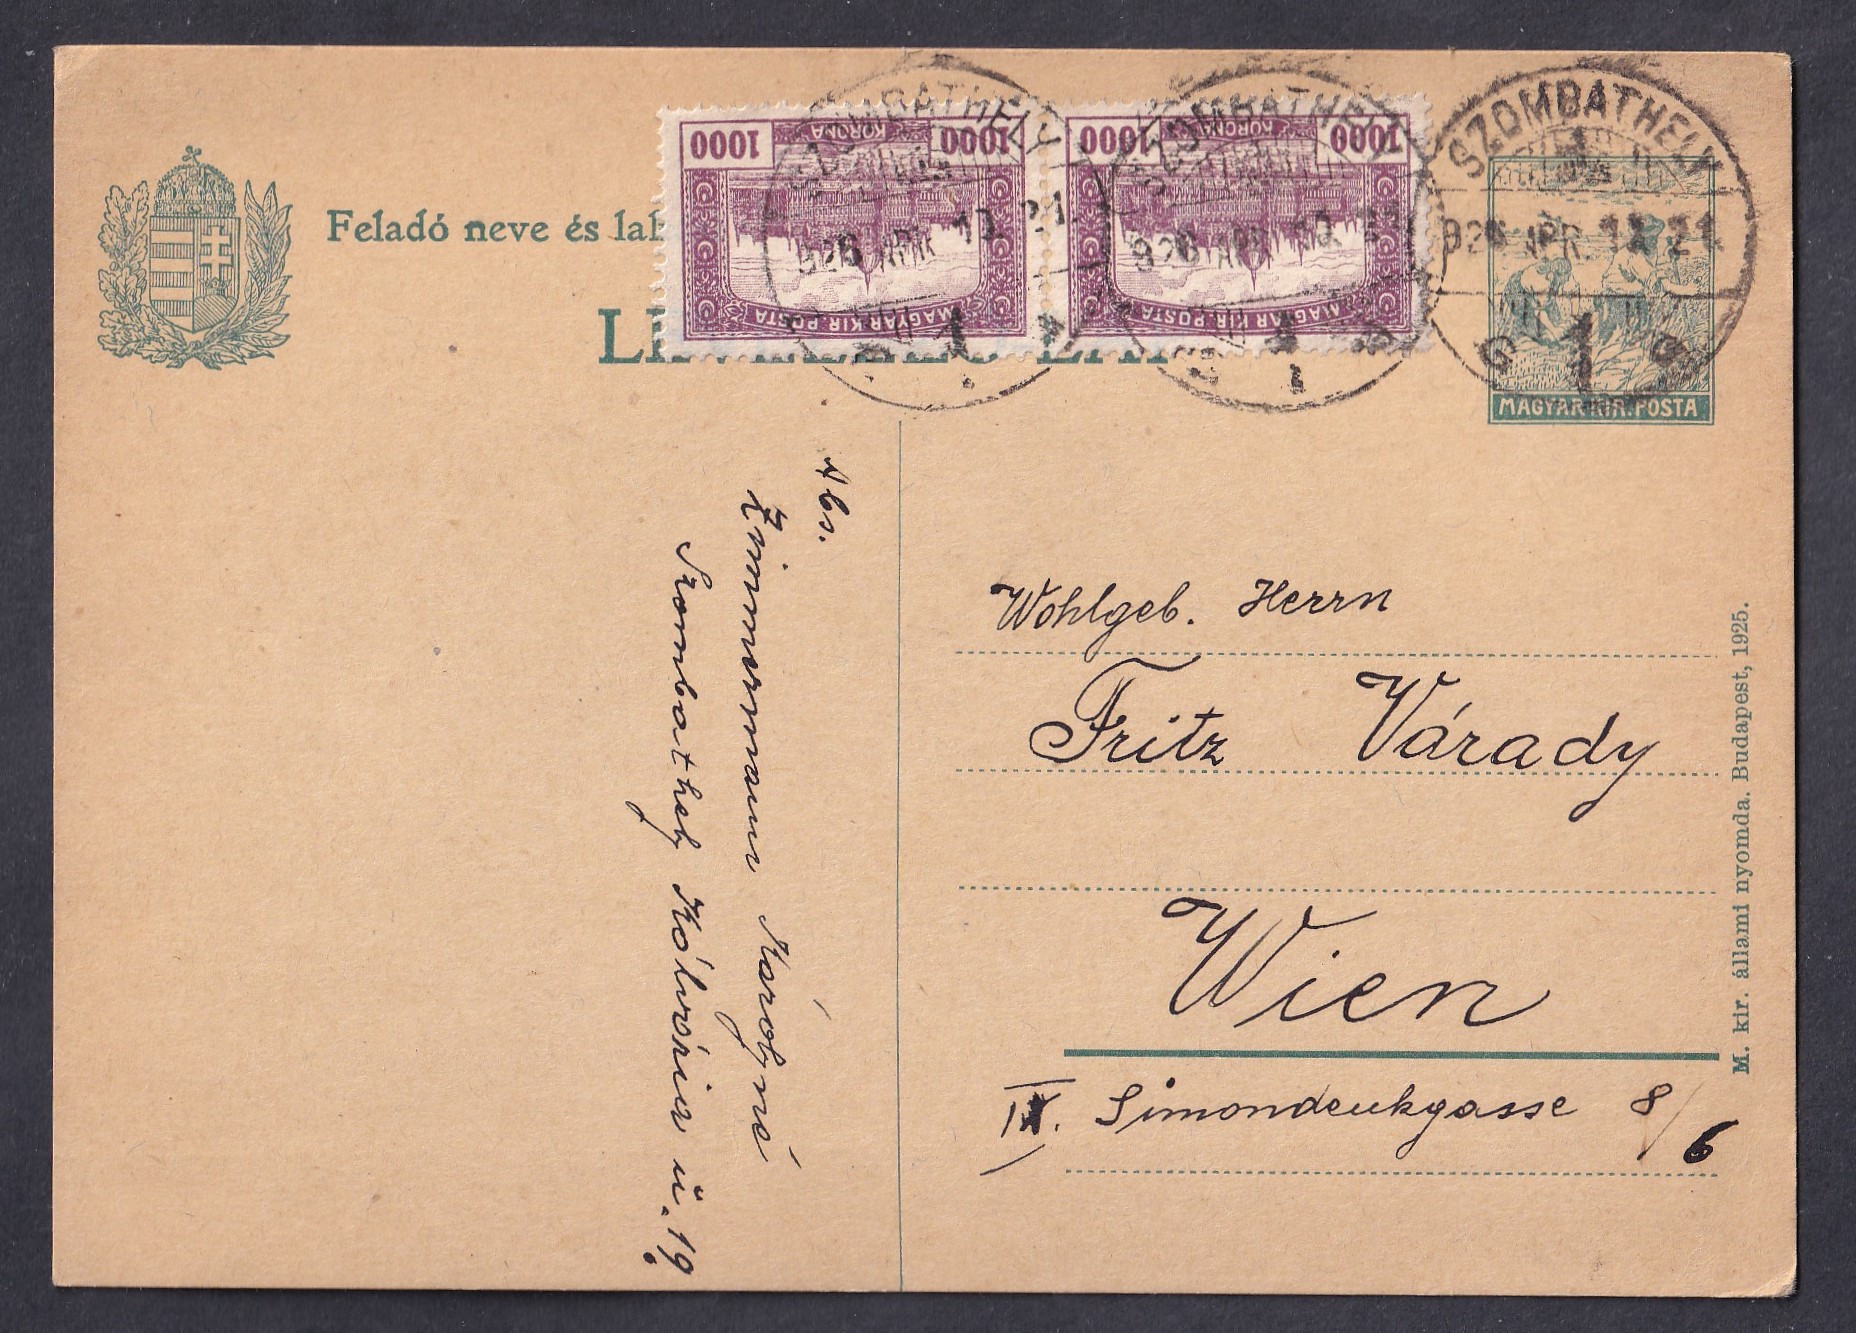 Feladó neve és
1000 KORONA 1000
MAGYAR KIR. POSTA
1000 KORONA 1000
MAGYAR KIR. POSTA
SZOMBATHELY
926 APR. 10. 21
1
SZOMBATHELY
926 APR. 10. 21
1
SZOMBATHELY
926 APR. 1 21
1
MAGYAR KIR. POSTA
Abs.
Zimmermann Károlyné
Szombathely Kálvária u. 19.
Wohlgeb. Herrn
Fritz Várady
Wien
IX. Simondenkgasse 8/6
M. kir. állami nyomda. Budapest, 1925.